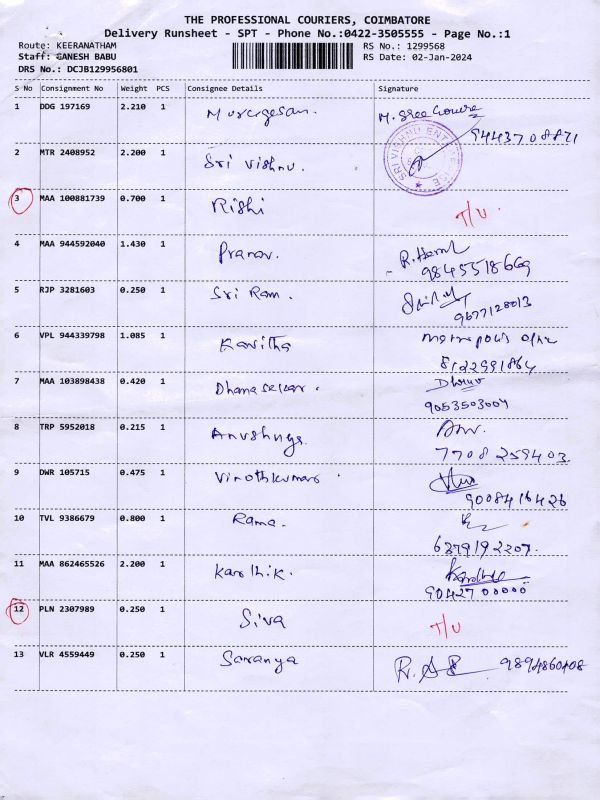 THE PROFESSIONAL COURIERS, COIMBATORE
Delivery Runsheet - SPT - Phone No.:0422-3505555 - Page No.:1
Route: KEERANATHAM RS No.: 1299568
Staff: GANESH BABU RS Date: 02-Jan-2024
DRS No.: DCJB129956801
S No Consignment No Weight PCS Consignee Details Signature
1 DDG 197169 2.210 1 Murugesan. M. Sree Gowre
9443708871
2 MTR 2408952 2.200 1 Sri Vishnu. SRI VISHNU ENTERPRISE
3 MAA 100881739 0.700 1 Rishi T/U
4 MAA 944592040 1.430 1 Pranav.
9845518669
5 RJP 3281603 0.250 1 Sri Ram.
9677128013
6 VPL 944339798 1.085 1 Kavitha
8122591864
7 MAA 103898438 0.420 1 Dhanasekar.
9053503009
8 TRP 5952018 0.215 1 Anushuya
7708259403
9 DWR 105715 0.475 1 Vinothkumar
9008416426
10 TVL 9386679 0.800 1 Rama.
6379192207.
11 MAA 862465526 2.200 1 Karthik. Karthik
9042700000
12 PLN 2307989 0.250 1 Siva T/U
13 VLR 4559449 0.250 1 Saranya 9894860408